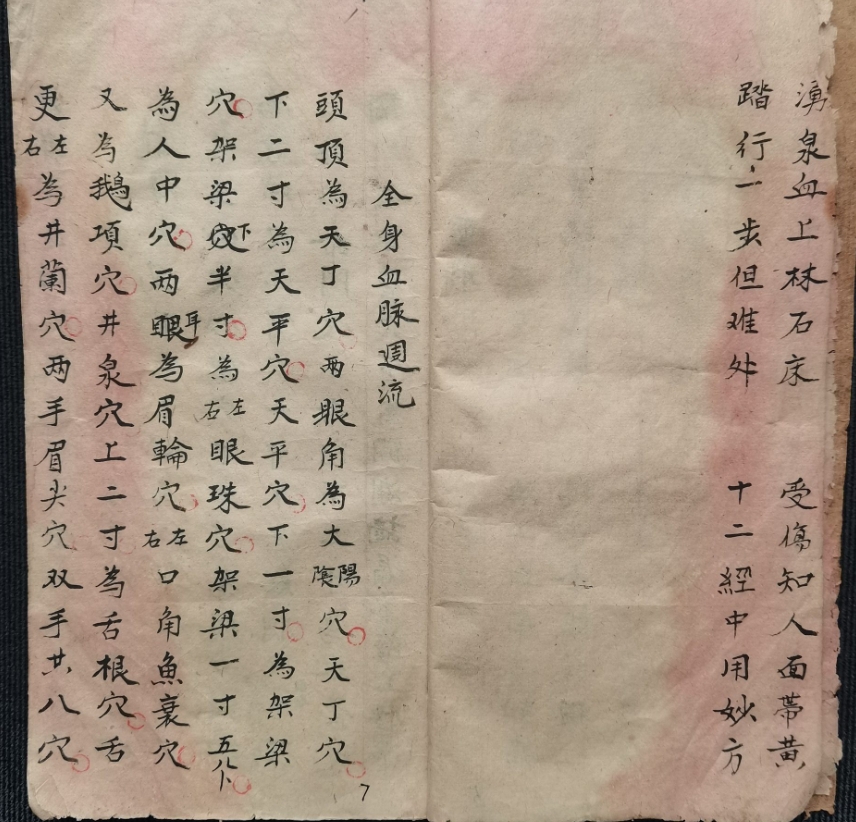 湧泉血上林石床　受傷知人面帶黄
踏行一步但难外　十二經中用妙方
全身血脉週流
頭頂為天丁穴两眼角為大陽陰穴天丁穴
下二寸為天平穴天平穴下一寸為架梁
穴架梁下半寸為左右眼珠穴架梁一寸五
為人中穴两耳眼為眉輪穴左右口角魚衰穴
又為鵝項穴井泉穴上二寸為舌根穴舌
更左右為井蘭穴两手眉尖穴双手共八穴
7